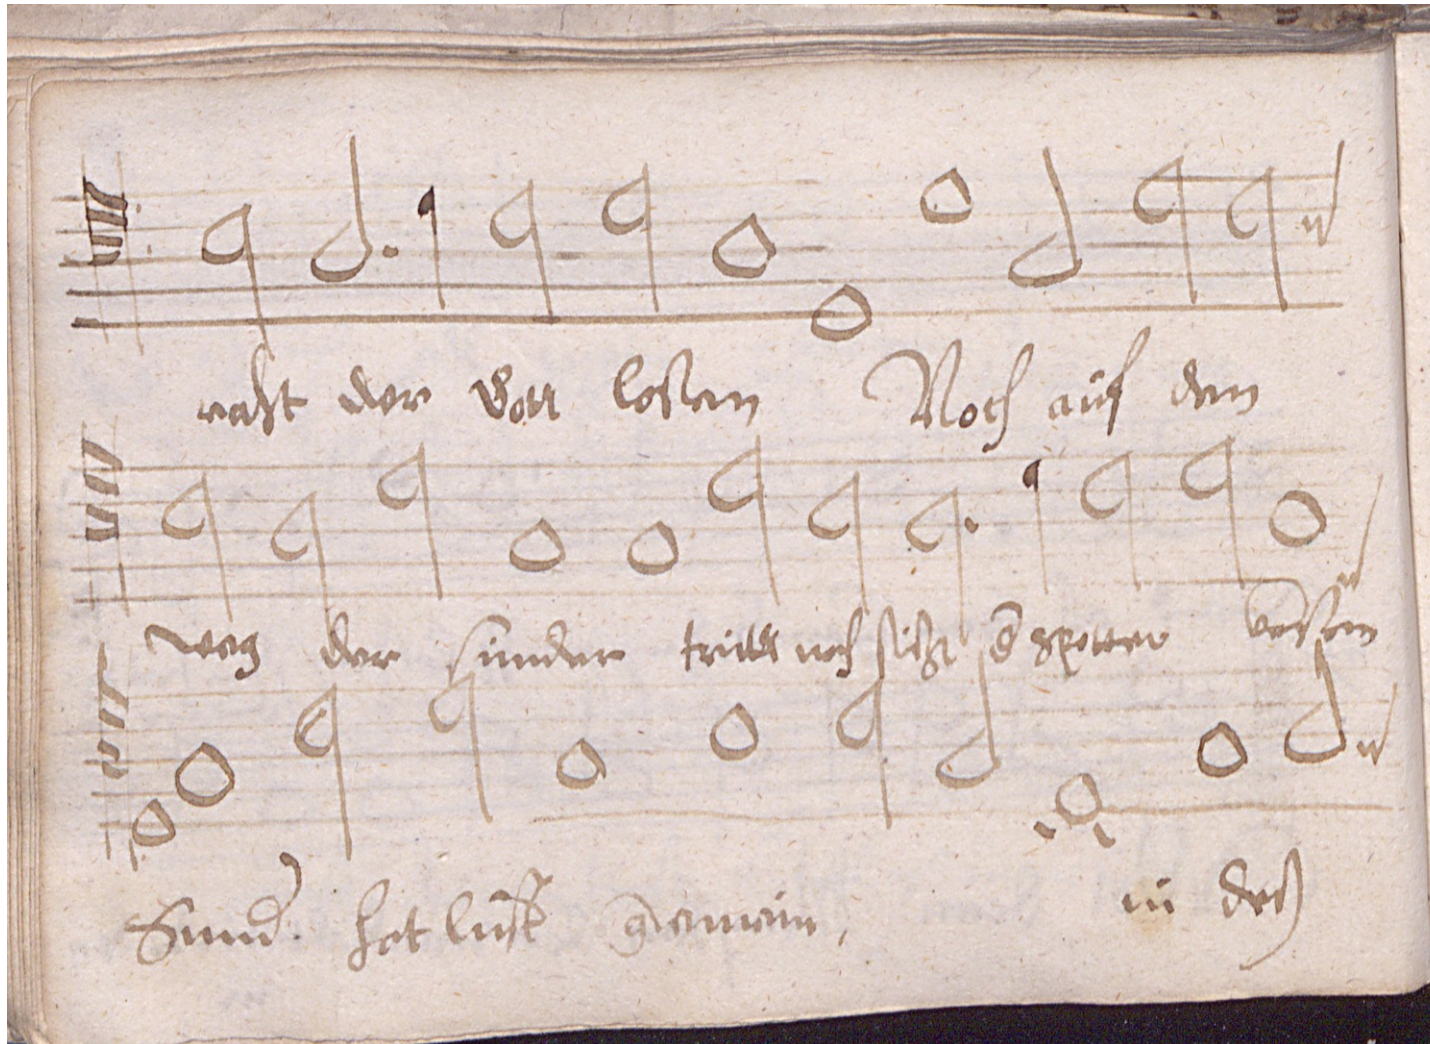 raht der Gott losen Noch auf den
weg der sunder tritt noch sitzt d spotter
Sund hat lust gemein, in des